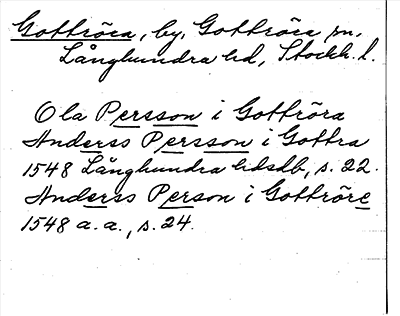 Gottröra, by, Gottröra sn,
Långhundra hd, Stockh. l.
Ola Persson i Gottröra
Anderss Persson i Gottra
1548 Långhundra hdsdb, s. 22.
Anderss Person i Gottröre
1548 a. a., s. 24.